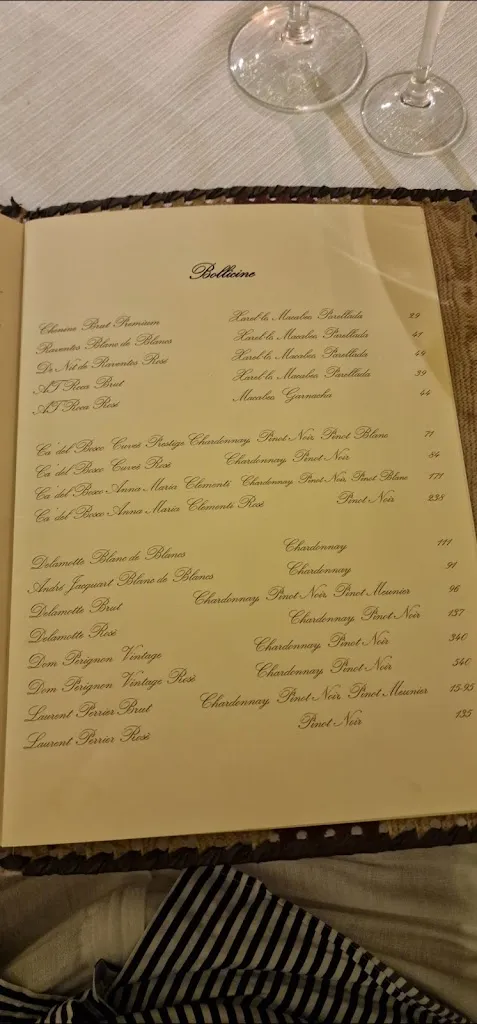 Bollicine
Chenine Brut Premium Xarel·lo, Macabeo, Parellada 29
Raventos Blanc de Blancs Xarel·lo, Macabeo, Parellada 41
De Nit de Raventos Rosé Xarel·lo, Macabeo, Parellada 49
AT Roca Brut Xarel·lo, Macabeo, Parellada 39
AT Roca Rosé Macabeo, Garnacha 44
Ca'del Bosco Cuveé Prestige Chardonnay, Pinot Noir, Pinot Blanc 71
Ca'del Bosco Cuveé Rosé Chardonnay, Pinot Noir 84
Ca'del Bosco Anna Maria Clementi Chardonnay, Pinot Noir, Pinot Blanc 171
Ca'del Bosco Anna Maria Clementi Rosé Pinot Noir 238
Delamotte Blanc de Blancs Chardonnay 111
André Jacquart Blanc de Blancs Chardonnay 91
Delamotte Brut Chardonnay, Pinot Noir, Pinot Meunier 96
Delamotte Rosé Chardonnay, Pinot Noir 137
Dom Pérignon Vintage Chardonnay, Pinot Noir 340
Dom Pérignon Vintage Rosé Chardonnay, Pinot Noir 540
Laurent Perrier Brut Chardonnay, Pinot Noir, Pinot Meunier 15-95
Laurent Perrier Rosé Pinot Noir 135